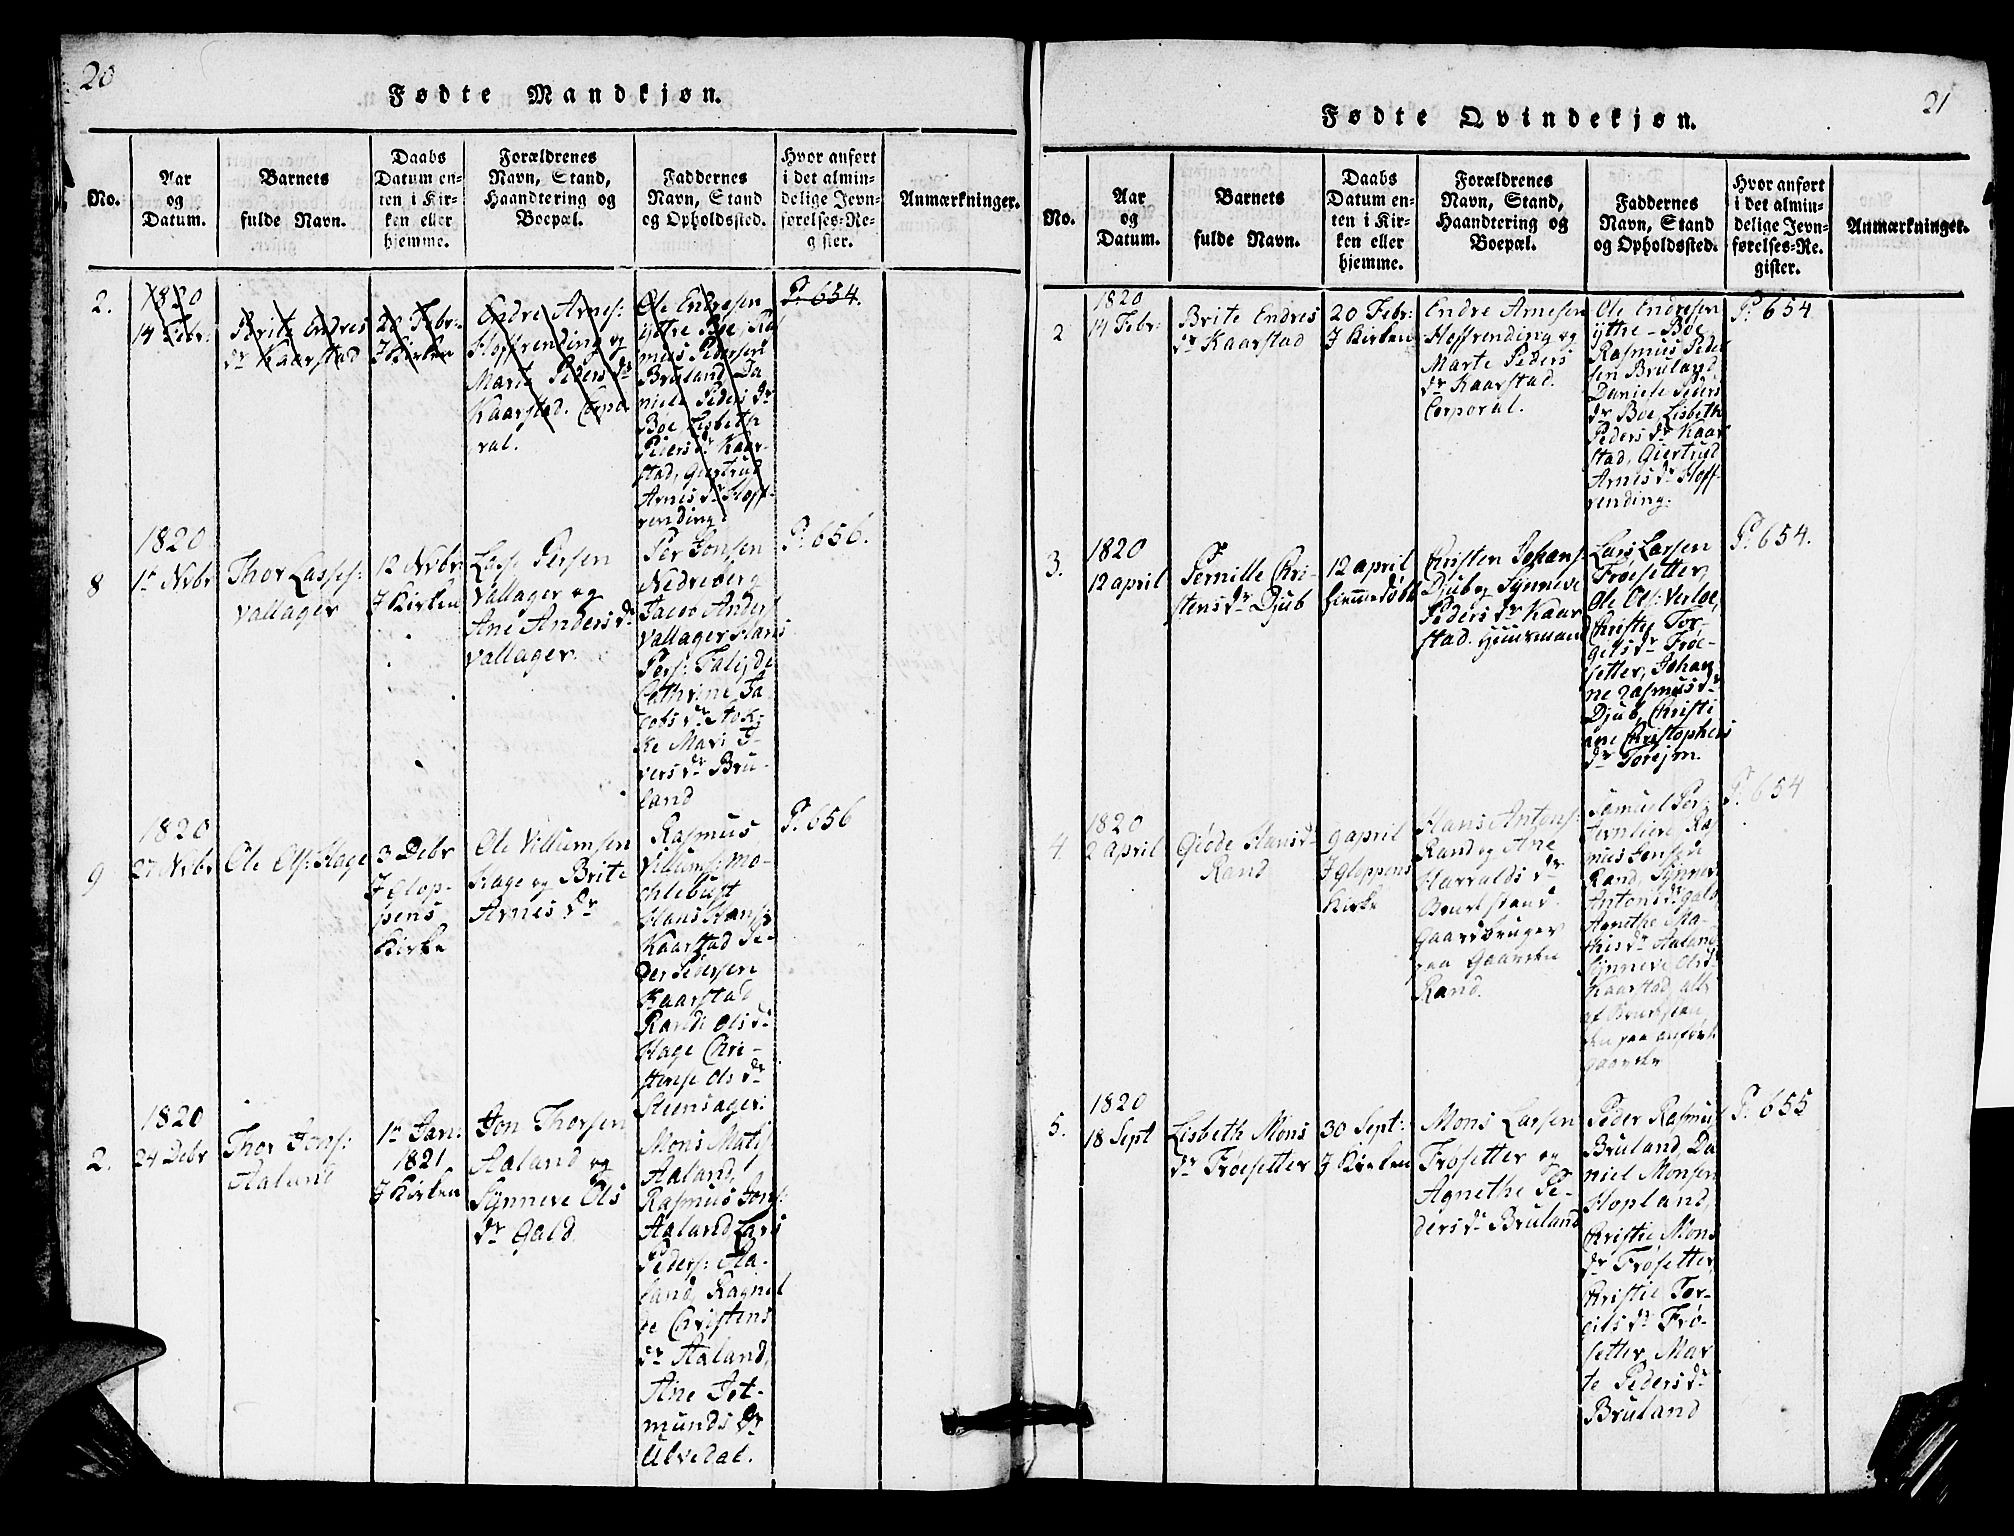 20
Fødte Mandkjøn.
No.
Aar
og
Datum.
Barnets
fulde Navn.
Daabs
Datum en-
ten i Kir-
ken eller
hjemme.
Forældrenes
Navn, Stand,
Haandtering og
Boepæl.
Faddernes
Navn, Stand
og Opholdssted.
Hvor anført
i det almin-
delige Jevn-
førelses-Re-
gister.
Anmærkninger.
2.
1820
14 Febr:
Brite Endres
dr Kaarstad
20 Febr:
I Kirken
Endre Arnes:
Hoffrending og
Marte Peders dr
Kaarstad. Corpo
ral.
Ole Endresen
ÿttre Bøe, Ras
mus Pedersen
Bruland, Da
niele Peders dr
Bøe Lisbeth
Peders dr Kaar-
stad, Giertrud
Arnes dr Hoff-
rending.
P. 654.
8
1820
1te Nvbr
Thor Lasses:
Vallager
12 Nvbr:
I Kirken
Lasse Persen
Vallager og
Ane Anders dr
Vallager.
Per Jonsen
Nedreberg
Jacob Anders
Vallager Hans
Pers: Falisde
Cathrine Ja
cobs dr Stok-
ke Mari I-
vers dr Bru-
land
P. 656.
9
1820
27 Nvbr
Ole Ols: Hage
3 Debr
I Glop-
pens
Kirke
Ole Villumsen
Hage og Brite
Arnes dr
Rasmus
Villums: Mo-
chlebust
Hans Hans:
Kaarstad Pe-
der Pedersen
Kaarstad
Randi Ols dr
Hage Chri-
stense Ols dr
Steensager:
P. 656
2.
1820
24 Debr
Thor Jons:
Aaland
1te Jan:
1821
I Kirken
Jon Thorsen
Aaland og
Synneve Ols
dr Gald
Mons Mats:
Aaland,
Rasmus Jons:
Aaland Lars
Peders: Aa-
land, Ragnil
te Christens
dr Aaland,
Ane Jet-
munds dr
Ulvedal.
21
Fødte Qvindekjøn.
No.
Aar
og
Datum.
Barnets
fulde Navn.
Daabs
Datum en-
ten i Kir-
ken eller
hjemme.
Forældrenes
Navn, Stand,
Haandtering og
Boepæl.
Faddernes
Navn, Stand
og Opholdssted.
Hvor anført
i det almin-
delige Jevn-
førelses-Re-
gister.
Anmærkninger.
2
1820
14 Febr:
Brite Endres
dr Kaarstad
20 Febr:
I Kirken
Endre Arnesen
Hoffrending og
Marte Peders
dr Kaarstad.
Corporal.
Ole Endresen
ÿttre-Bøe
Rasmus Peder
sen Bruland
Daniele Peders
dr Bøe, Lisbeth
Peders dr Kaar
stad, Giertrud
Arnes dr Hoff-
rending.
P. 654
3.
1820
12 april
Pernille Chri-
stens dr Djub
12 april
hiemmedøbt
Christen Johans:
Djub og Synneve
Peders dr Kaar
stad. Huusmand
Lars Larsen
Frøesetter,
Ole Ols: Verloe,
Christie Tor-
gels dr Frøe-
setter, Johan
ne Rasmus dr
Djub, Christi
ane Christophers
dr Toreim.
P. 654.
4.
1820
2 april
Giøde Hans dr
Rand
9 april
I Gloppens
Kirke
Hans Antons:
Rand og Ane
Harralds dr
Brurstand.
Gaardbruger
paa Gaarden
Rand.
Rand, Synnev
Antons dr Gald
Agnethe Ma-
this dr Aaland
Synneve Ols dr
Kaarstad, alle
P. 654
5.
1820
18 Sept
Lisbeth Mons
dr Frøesetter
30 Sept:
I Kirken
Mons Larsen
Frøsetter og
Agnethe Pe-
ders dr Bruland
Peder Rasmus
Bruland, Da
niel Monsen
Hopland,
Christie Mons
dr Frøsetter,
Christie Tor-
gils dr Frø-
setter, Mar
te Peders dr
Bruland
P. 655